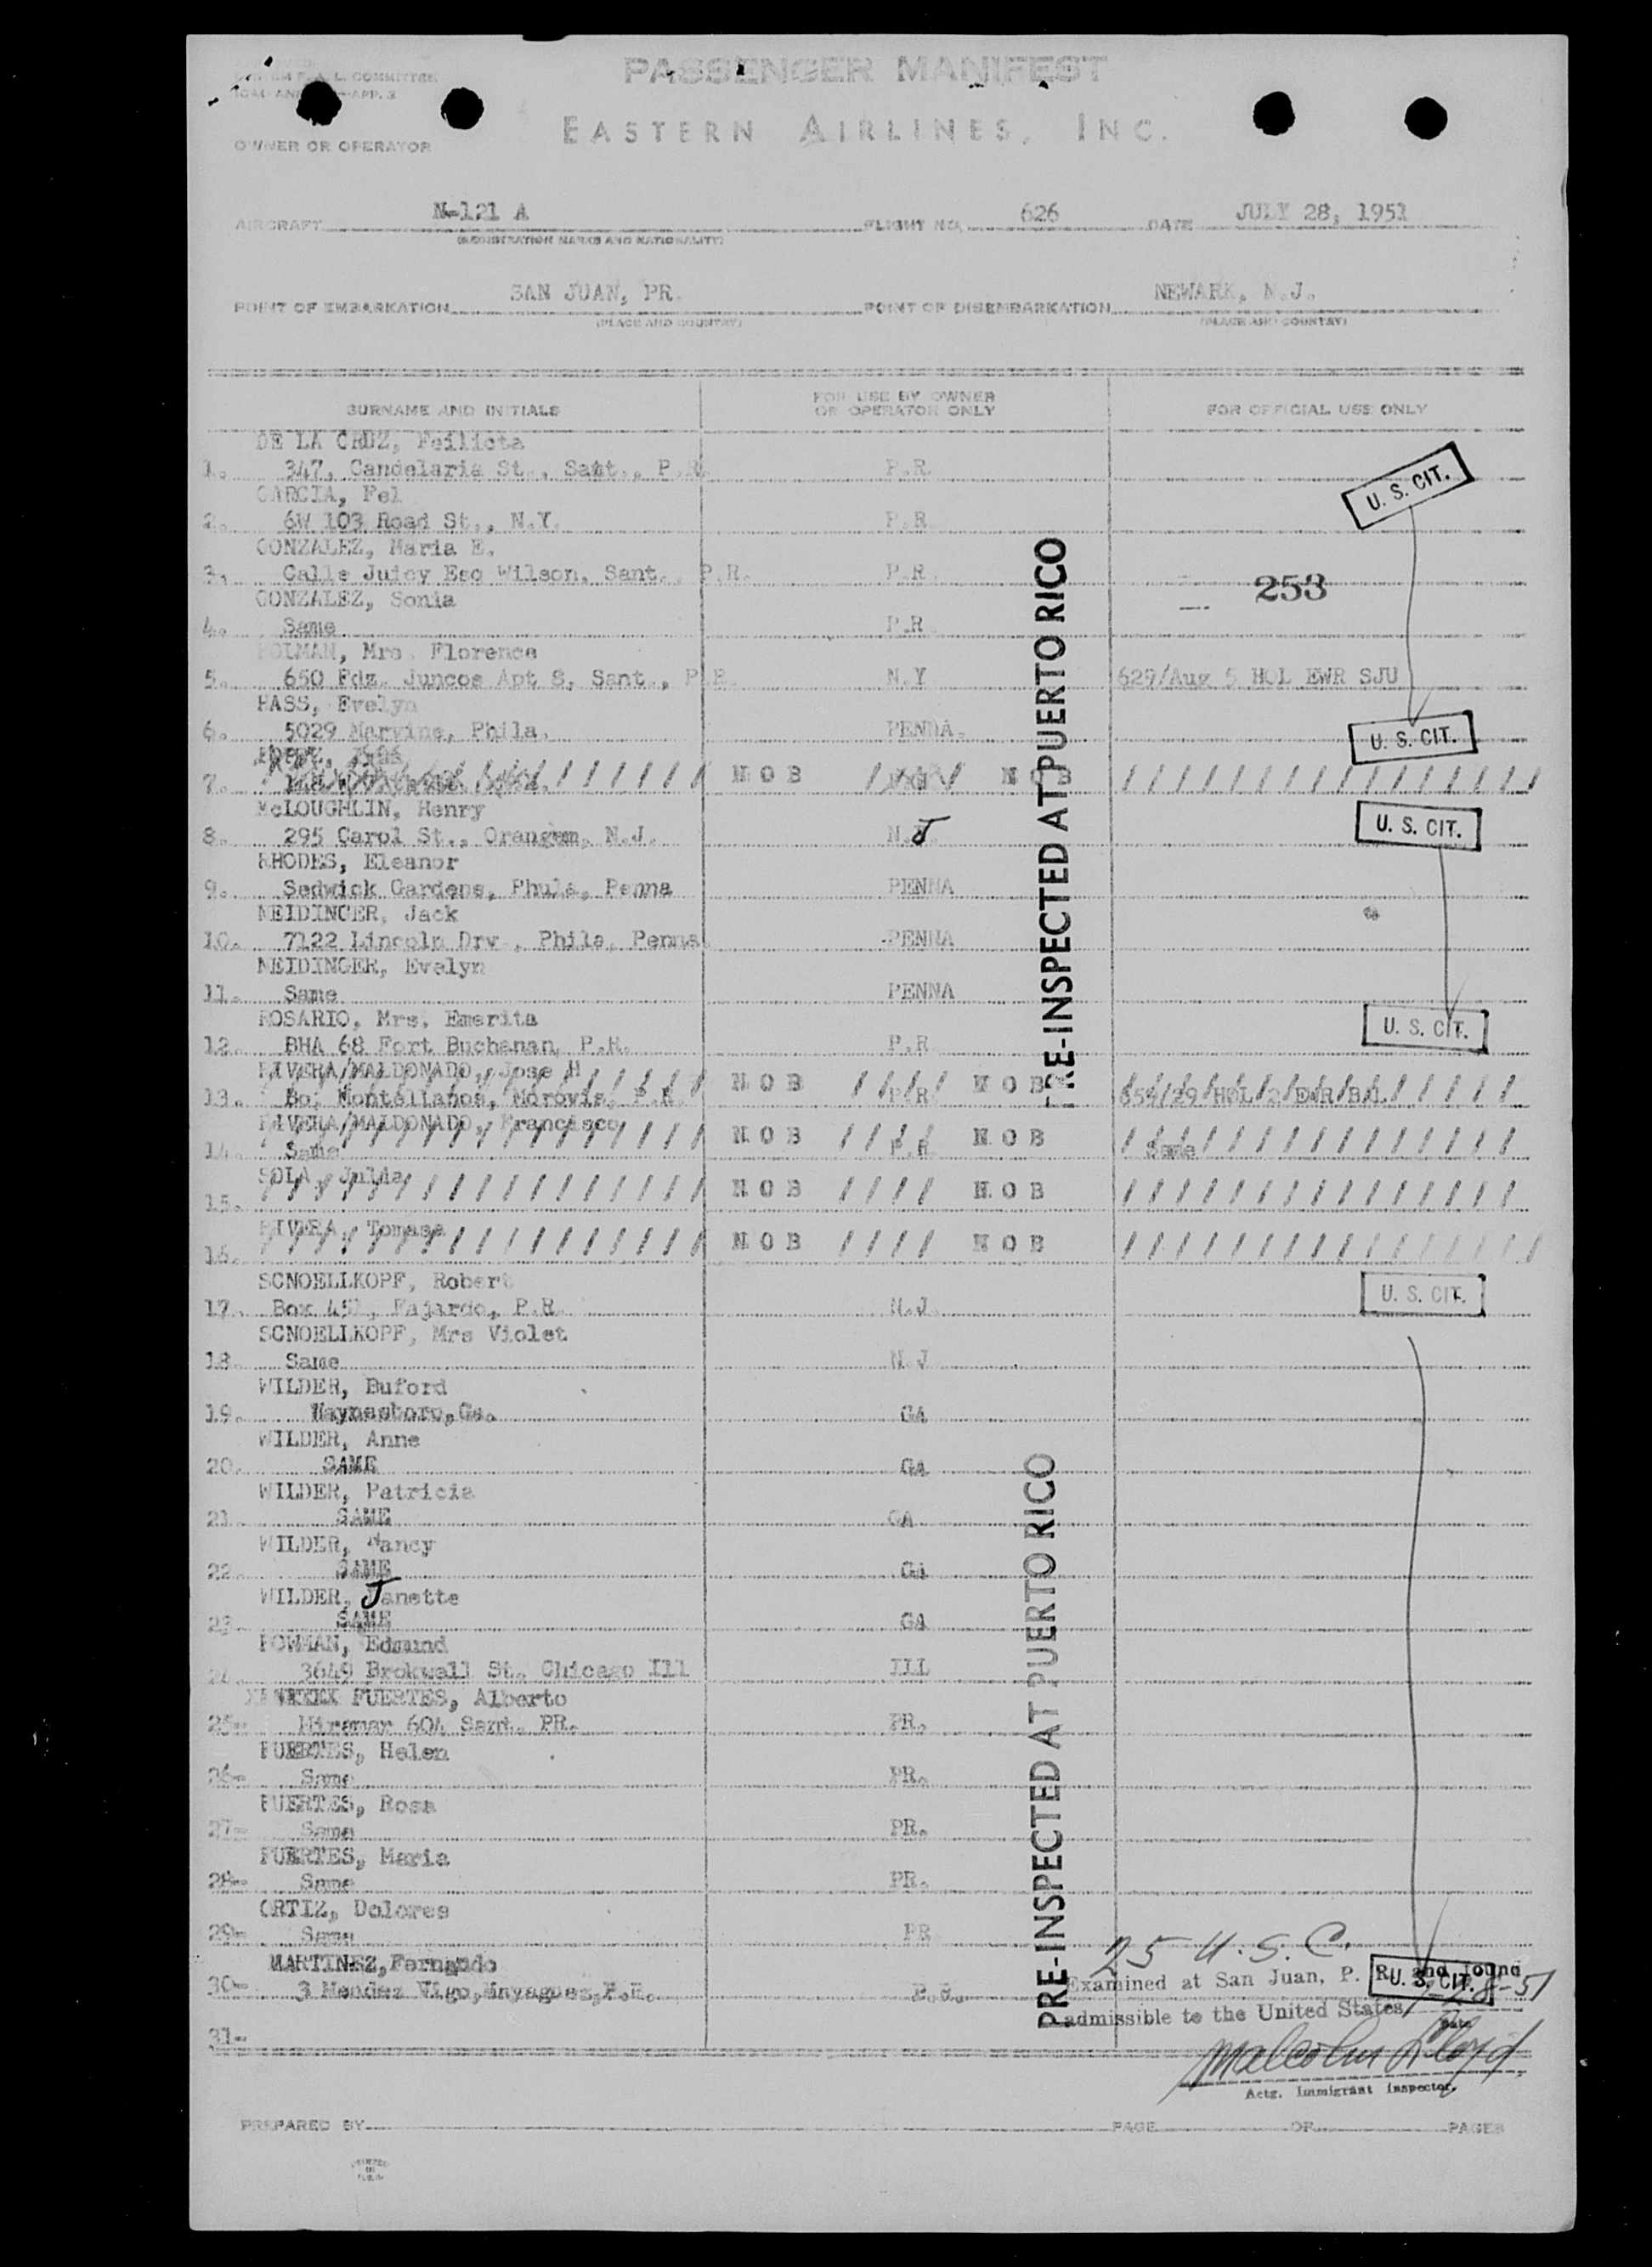 PASSENGER MANIFEST
EASTERN AIRLINES, INC.
OWNER OR OPERATOR
AIRCRAFT N-121 A FLIGHT NO. 626 DATE JULY 28, 1951
(REGISTRATION MARKS AND NATIONALITY)
POINT OF EMBARKATION SAN JUAN, PR. POINT OF DISEMBARKATION NEWARK, N.J.
(PLACE AND COUNTRY) (PLACE AND COUNTRY)
SURNAME AND INITIALS FOR USE BY OWNER OR OPERATOR ONLY FOR OFFICIAL USE ONLY
DE LA CRUZ, Feilicta
1. 347, Candelaria St., Sant., P.R. P.R.
U. S. CIT.
GARCIA, Fel
2. 6W 103 Road St., N.Y. P.R.
GONZALEZ, Maria E.
3. Calle Juicy Esq Wilson, Sant., P.R. P.R.
253
GONZALEZ, Sonia
4. Same P.R
HOLMAN, Mrs. Florence
5. 650 Fdz. Juncos Apt 8, Sant., P.R. N.Y 629/Aug 5 HOL EWR SJU
PASS, Evelyn
6. 5029 Marvine, Phila. PENNA.
U. S. CIT.
7. N O B N O B
McLOUGHLIN, Henry
8. 295 Carol St., N.J. N.J.
U. S. CIT.
RHODES, Eleanor
9. Sedwick Gardens, Phula, Penna PENNA
NEIDINGER, Jack
10. 7122 Lincoln Drv., Phila, Penna. PENNA
NEIDINGER, Evelyn
11. Same PENNA
ROSARIO, Mrs. Emerita
12. BHA 68 Fort Buchanan, P.R. P.R
U. S. CIT.
RIVERA/MALDONADO, Jose H
13. Bo. Montellanos, Morovis, P.R. N O B P.R N O B 654/29/HOL/2/EWR/BAL
RIVERA/MALDONADO, Francisco
14. Same N O B P.R N O B Same
SOLA, Julia
15. N O B N O B
RIVERA, Tomasa
16. N O B N O B
SCNOELLKOPF, Robert
17. Box 451, Fajardo, P.R. N.J.
U. S. CIT.
SCNOELLKOPF, Mrs Violet
18. Same N.J
WILDER, Buford
19. Waynesboro, Ga. GA
WILDER, Anne
20. SAME GA
WILDER, Patricia
21. SAME GA
WILDER, Nancy
22. SAME GA
WILDER, Janette
23. SAME GA
BOWMAN, Edmund
24. 3649 Brokwall St. Chicago Ill ILL
FUERTES, Alberto
25- Miramar 604 Sant. PR. PR.
FUERTES, Helen
26- Same PR.
FUERTES, Rosa
27- Same PR.
FUERTES, Maria
28- Same PR.
ORTIZ, Dolores
29- Same PR
25 U.S.C.
MARTINEZ, Fernando
30- 3 Mendez Vigo, Mayaguez, P.R. P.R.
31-
PRE-INSPECTED AT PUERTO RICO
PRE-INSPECTED AT PUERTO RICO
Examined at San Juan, P. R. and found
U. S. CIT.
admissible to the United States 7-28-51
Date
Malcolm Lloyd
Actg. Immigrant Inspector.
PREPARED BY PAGE OF PAGES